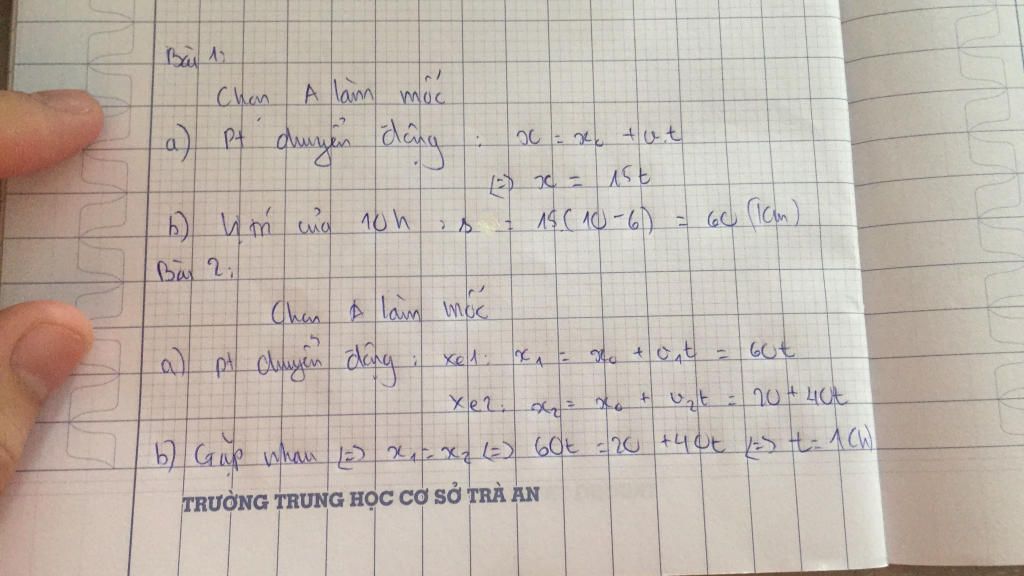 Bài 1:
Chọn A làm mốc
a) pt chuyển động : x = x₀ + v.t
(=) x = 15t
b) Vị trí của 10h : s = 15(10-6) = 60 (km)
Bài 2:
Chọn A làm mốc
a) pt chuyển động : xe1: x₁ = x₀ + v₁t = 60t
xe2: x₂ = x₀ + v₂t = 20 + 40t
b) Gặp nhau (=) x₁ = x₂ (=) 60t = 20 + 40t (=) t = 1(h)
TRƯỜNG TRUNG HỌC CƠ SỞ TRÀ AN